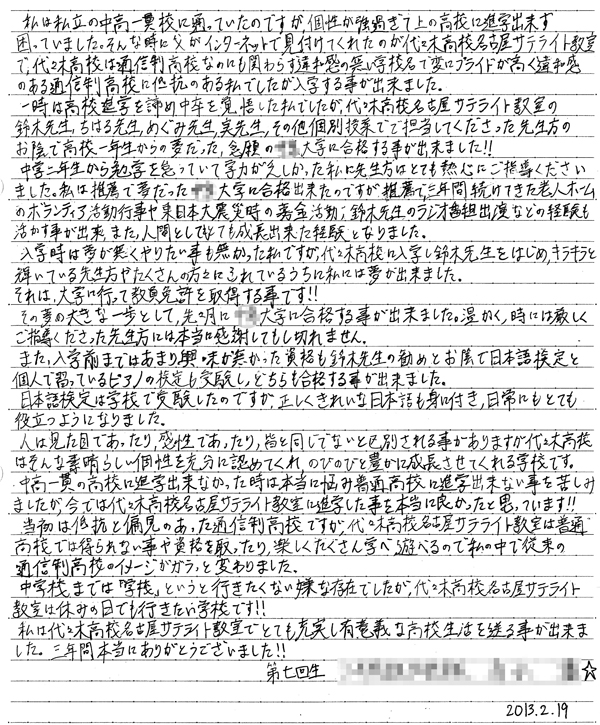 私は私立の中高一貫校に通っていたのですが、個性が強過ぎて上の高校に進学出来ず
困っていました。そんな時に父がインターネットで見付けてくれたのが代々木高校名古屋サテライト教室
で、代々木高校は通信制高校なのにも関わらず違和感の無い学校名で変にプライドが高く違和感
のある通信制高校に抵抗のある私でしたが入学する事が出来ました。
一時は高校進学を諦め中卒を覚悟した私でしたが、代々木高校名古屋サテライト教室の
鈴木先生、ちはる先生、めぐみ先生、実先生、その他個別授業でご担当してくださった先生方の
お陰で高校一年生からの夢だった、念願の大学に合格する事が出来ました!!
中学二年生から勉学を怠っていて学力が乏しかった私に先生方はとても熱心にご指導ください
ました。私は推薦で夢だった大学に合格出来たのですが推薦で三年間続けてきた老人ホーム
のボランティア活動行事や東日本大震災時の募金活動、鈴木先生のラジオ番組出演などの経験も
活かす事が出来、また、人間としてとても成長出来た経験となりました。
入学時は夢が無くやりたい事も無かった私ですが、代々木高校に入学し鈴木先生をはじめ、キラキラと
輝いている先生方やたくさんの方々にふれているうちに私には夢が出来ました。
それは、大学に行って教員免許を取得する事です!!
その夢の大きな一歩として、先月に大学に合格する事が出来ました。温かく、時には厳しく
ご指導くださった先生方には本当に感謝してもし切れません。
また、入学前まではあまり興味が無かった資格も鈴木先生の勧めとお陰で日本語検定と
個人で習っているピアノの検定も受験し、どちらも合格する事が出来ました。
日本語検定は学校で受験したのですが、正しくきれいな日本語も身に付き、日常にもとても
役立つようになりました。
人は見た目であったり、感性であったり、皆と同じでないと区別される事がありますが代々木高校
はそんな素晴らしい個性を充分に認めてくれ、のびのびと豊かに成長させてくれる学校です。
中高一貫の高校に進学出来なかった時は本当に悩み普通高校に進学出来ない事を苦しみ
ましたが今では代々木高校名古屋サテライト教室に進学した事を本当に良かったと思っています!!
当初は抵抗と偏見のあった通信制高校ですが、代々木高校名古屋サテライト教室は普通
高校では得られない事や資格を取ったり、楽しくたくさん学べ遊べるので私の中で従来の
通信制高校のイメージがガラッと変わりました。
中学校までは「学校」というと行きたくない嫌な存在でしたが、代々木高校名古屋サテライト
教室は休みの日でも行きたい学校です!!
私は代々木高校名古屋サテライト教室でとても充実し有意義な高校生活を送る事が出来ま
した。三年間本当にありがとうございました!!
第七回生 ☆
2013.2.19